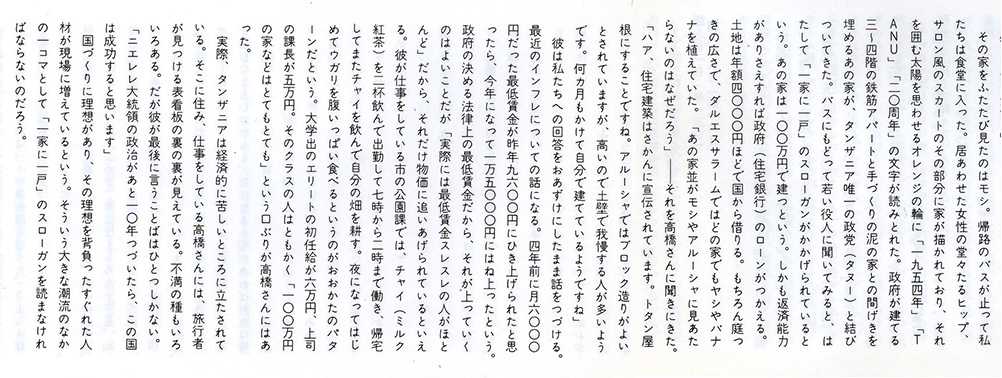 その家をふたたび見たのはモシ。帰路のバスが止って私
たちは食堂に入った。居あわせた女性の堂々たるヒップ、
サロン風のスカートのその部分に家が描かれており、それ
を囲む太陽を思わせるオレンジの輪に「一九五四年」「T
ANU」「二〇周年」の文字が読みとれた。政府が建てる
三―四階の鉄筋アパートと手づくりの泥の家との間げきを
埋めるあの家が、タンザニア唯一の政党（タヌー）と結び
ついてきた。バスにもどって若い役人に聞いてみると、は
たして「一家に一戸」のスローガンがかかげられていると
いう。あの家は一〇〇万円で建つという。しかも返済能力
がありさえすれば政府（住宅銀行）のローンがつかえる。
土地は年額四〇〇〇円ほどで国から借りる。もちろん庭つ
きの広さで、ダルエスサラームではどの家でもヤシやバナ
ナを植えていた。「あの家並がモシやアルーシャに見あた
らないのはなぜだろう」――それを高橋さんに聞きにきた。
「ハア、住宅建築はさかんに宣伝されています。トタン屋
根にすることですね。アルーシャではブロック造りがよい
とされていますが、高いので土壁で我慢する人が多いよう
です。何カ月もかけて自分で建てているようですね」
彼は私たちへの回答をおあずけにしたまま話をつづける。
最近のインフレについての話になる。四年前に月六〇〇〇
円だった最低賃金が昨年九六〇〇円にひき上げられたと思
ったら、今年になって一万五〇〇〇円にはね上ったという。
政府の決める法律上の最低賃金だから、それが上っていく
のはよいことだが「実際には最低賃金スレスレの人がほと
んど」だから、それだけ物価に追いあげられているといえ
る。彼が仕事をしている市の公園課では、チャイ（ミルク
紅茶）を二杯飲んで出勤して七時から二時まで働き、帰宅
してまたチャイを飲んで自分の畑を耕す。夜になってはじ
めてウガリを腹いっぱい食べるというのがおおかたのパタ
ーンだという。大学出のエリートの初任給が六万円、上司
の課長が五万円。そのクラスの人はともかく「一〇〇万円
の家などはとてもとても」という口ぶりが高橋さんにはあ
った。
実際、タンザニアは経済的に苦しいところに立たされて
いる。そこに住み、仕事をしている高橋さんには、旅行者
が見つける表看板の裏の裏が見えている。不満の種もいろ
いろある。だが彼が最後に言うことばはひとつしかない。
「ニエレレ大統領の政治があと一〇年つづいたら、この国
は成功すると思います」
国づくりに理想があり、その理想を背負ったすぐれた人
材が現場に増えているという。そういう大きな潮流のなか
の一コマとして「一家に一戸」のスローガンを読まなけれ
ばならないのだろう。